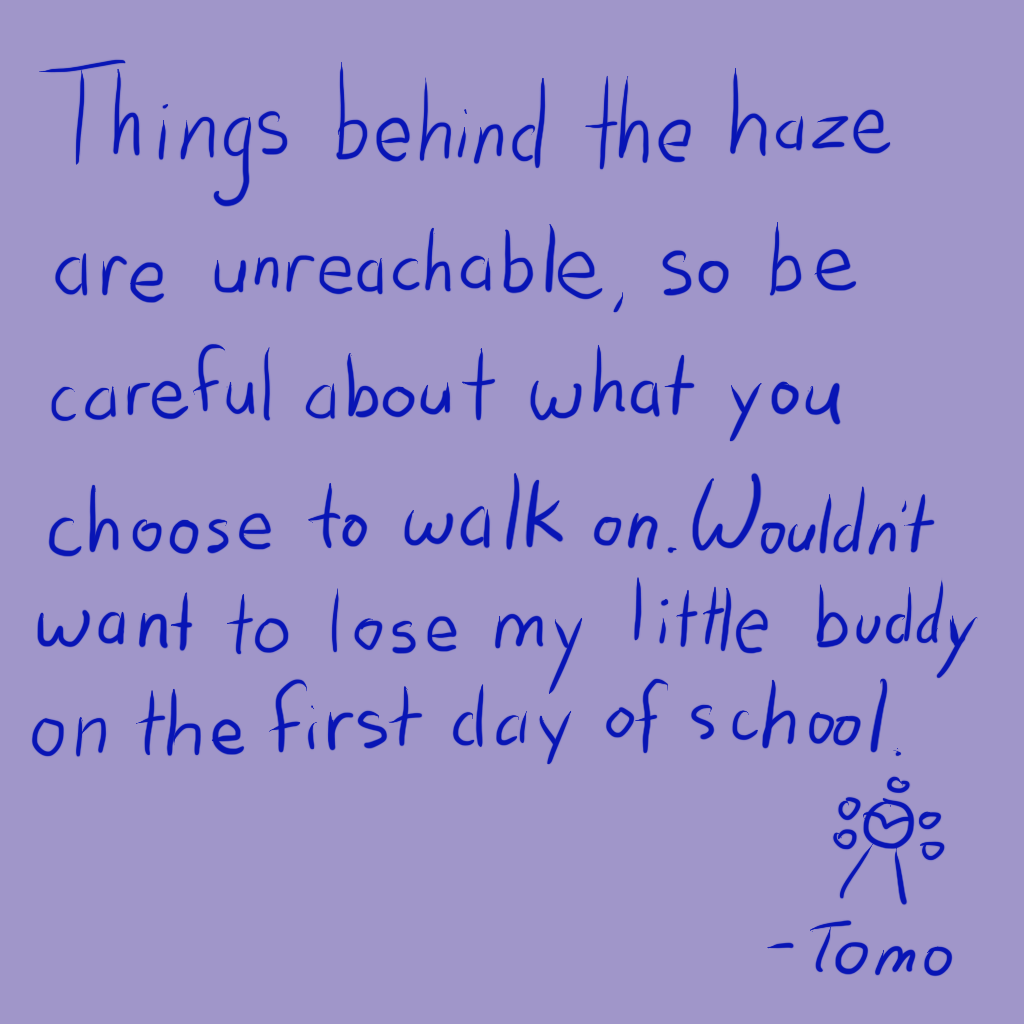 Things behind the haze
are unreachable, so be
careful about what you
choose to walk on. Wouldn't
want to lose my little buddy
on the first day of school.
-Tomo